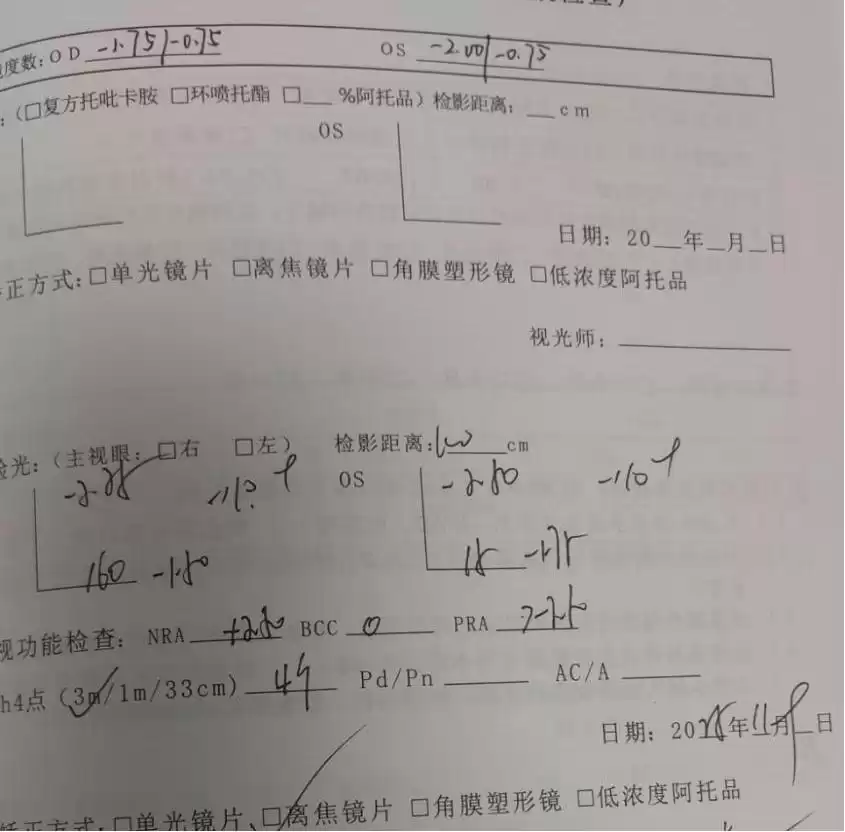 度数: OD -1.75/-0.75 OS -2.00/-0.75
: (□复方托吡卡胺 □环喷托酯 □___ %阿托品) 检影距离: ___ cm
OS
日期: 20__年__月__日
正方式: □单光镜片 □离焦镜片 □角膜塑形镜 □低浓度阿托品
视光师:
验光: (主视眼: □右 □左) 检影距离: 100 cm
OS -2.50
160 -1.50 15 -1.75
视功能检查: NRA +2.50 BCC 0 PRA -2.50
h4点 (3m/1m/33cm) Pd/Pn ____ AC/A ____
日期: 20 年11月 日
矫正方式: □单光镜片、□离焦镜片 □角膜塑形镜 □低浓度阿托品